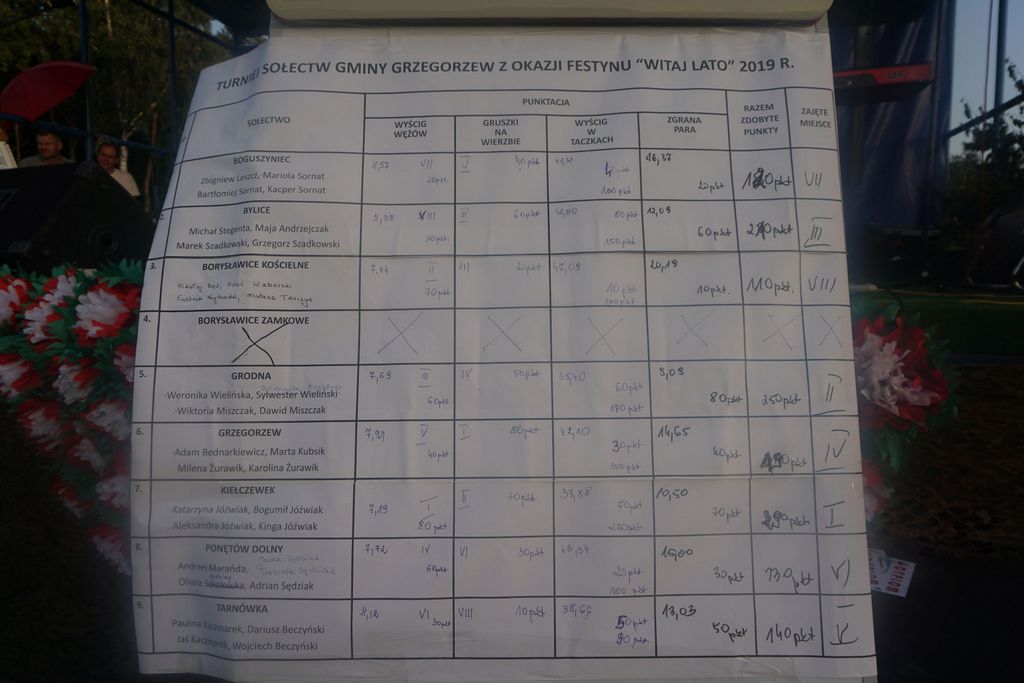 TURNIEJ SOŁECTW GMINY GRZEGORZEW Z OKAZJI FESTYNU "WITAJ LATO" 2019 R.
SOŁECTWO
PUNKTACJA
WYŚCIG WĘŻÓW
GRUSZKI NA WIERZBIE
WYŚCIG W TACZKACH
ZGRANA PARA
RAZEM ZDOBYTE PUNKTY
ZAJĘTE MIEJSCE
BOGUSZYNIEC
Zbigniew Leszcz, Mariola Sornat
Bartłomiej Sornat, Kacper Sornat
8,57 VII 20pkt.
V 40pkt
100pkt
16,37 20pkt
VII
2. BYLICE
Michał Stegenta, Maja Andrzejczak
Marek Szadkowski, Grzegorz Szadkowski
VIII 10pkt.
III 60pkt
80pkt
150pkt
12,09 60pkt
III
3. BORYSŁAWICE KOŚCIELNE
7,44 II 70pkt
VII 20pkt
10pkt
100pkt
20,19 10pkt.
110pkt. VIII
4. BORYSŁAWICE ZAMKOWE
5. GRODNA
Weronika Wielińska, Sylwester Wieliński
Wiktoria Miszczak, Dawid Miszczak
7,69 III 60pkt
IV 50pkt
60pkt
170pkt
80pkt
250pkt II
6. GRZEGORZEW
Adam Bednarkiewicz, Marta Kubsik
Milena Żurawik, Karolina Żurawik
V 40pkt
I 80pkt
42,10 30pkt
150pkt
14,65 40pkt
190pkt IV
7. KIEŁCZEWEK
Katarzyna Jóźwiak, Bogumił Jóźwiak
Aleksandra Jóźwiak, Kinga Jóźwiak
7,19 I 80pkt
II 70pkt
33,88 70pkt
220pkt
10,50 70pkt
290pkt I
8. PONĘTÓW DOLNY
Andrzej Marańda,
Oliwia Sędziak, Adrian Sędziak
7,72 IV
VI 30pkt
20pkt
100pkt
16,00 30pkt
130pkt VI
9. TARNÓWKA
Paulina Kaczmarek, Dariusz Beczyński
Jaś Kaczmarek, Wojciech Beczyński
8,12 VI 30pkt
VIII 10pkt
50pkt
90pkt
13,03 50pkt
140pkt V